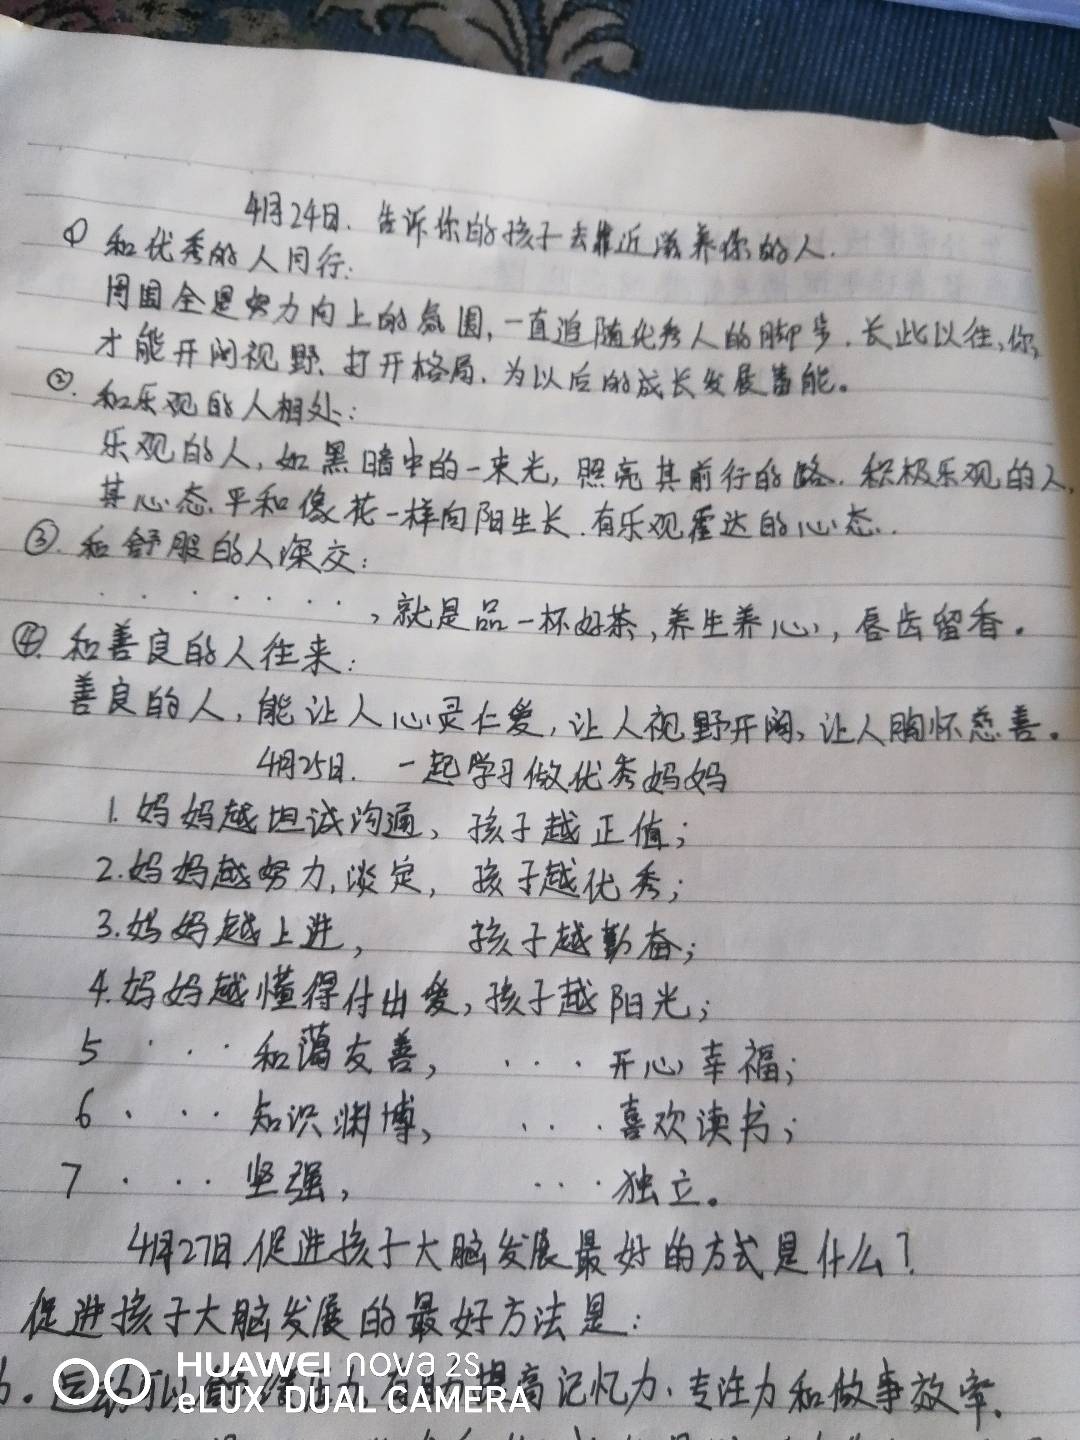 4月24日. 告诉你的孩子去靠近滋养你的人.
① 和优秀的人同行:
周围全是努力向上的氛围,一直追随优秀人的脚步.长此以往,你,
才能开阔视野、打开格局.为以后的成长发展蓄能。
②. 和乐观的人相处:
乐观的人,如黑暗中的一束光,照亮其前行的路.积极乐观的人,
其心态.平和像花一样向阳生长.有乐观霍达的心态..
③. 和舒服的人深交:
· · · · · · · ,就是品一杯好茶,养生养心,唇齿留香。
④. 和善良的人往来:
善良的人,能让人心灵仁爱,让人视野开阔,让人胸怀慈善。
4月25日. 一起学习做优秀妈妈
1. 妈妈越坦诚沟通, 孩子越正值;
2.妈妈越努力,淡定, 孩子越优秀;
3.妈妈越上进, 孩子越勤奋;
4.妈妈越懂得付出爱,孩子越阳光;
5 · · · 和蔼友善, · · · 开心幸福;
6 · · · 知识渊博, · · · 喜欢读书;
7 · · · 坚强, · · · 独立。
4月27日 促进孩子大脑发展最好的方式是什么?
促进孩子大脑发展的最好方法是:
运动可以 提高记忆力、专注力和做事效率.
HUAWEI nova 2S
eLUX DUAL CAMERA